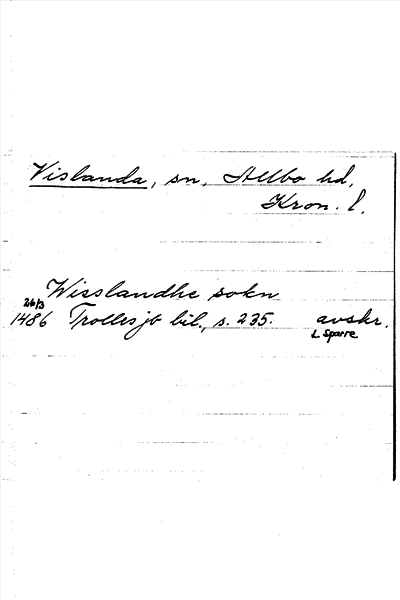 Vislanda, sn, Allbo hd,
Kron. l.
Wisslandhe sokn
26/3
1486 Trollesjö bil., s. 235. avskr.
L Sparre